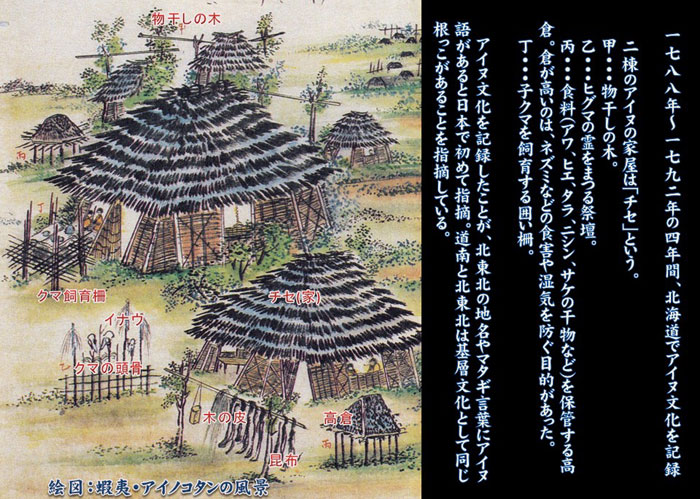 一七八八年～一七九二年の四年間、北海道でアイヌ文化を記録
二棟のアイヌの家屋は「チセ」という。
甲・・・物干しの木。
乙・・・ヒグマの霊をまつる祭壇。
丙・・・食料(アワ、ヒエ、タラ、ニシン、サケの干物など)を保管する高
倉。倉が高いのは、ネズミなどの食害や湿気を防ぐ目的があった。
丁・・・子クマを飼育する囲い柵。
アイヌ文化を記録したことが、北東北の地名やマタギ言葉にアイヌ
語があると日本で初めて指摘。道南と北東北は基層文化として同じ
根っこがあることを指摘している。
物干しの木
クマ飼育柵
チセ(家)
イナヴ
クマの頭骨
木の皮
高倉
昆布
丙
丁
丙
絵図：蝦夷・アイノコタンの風景